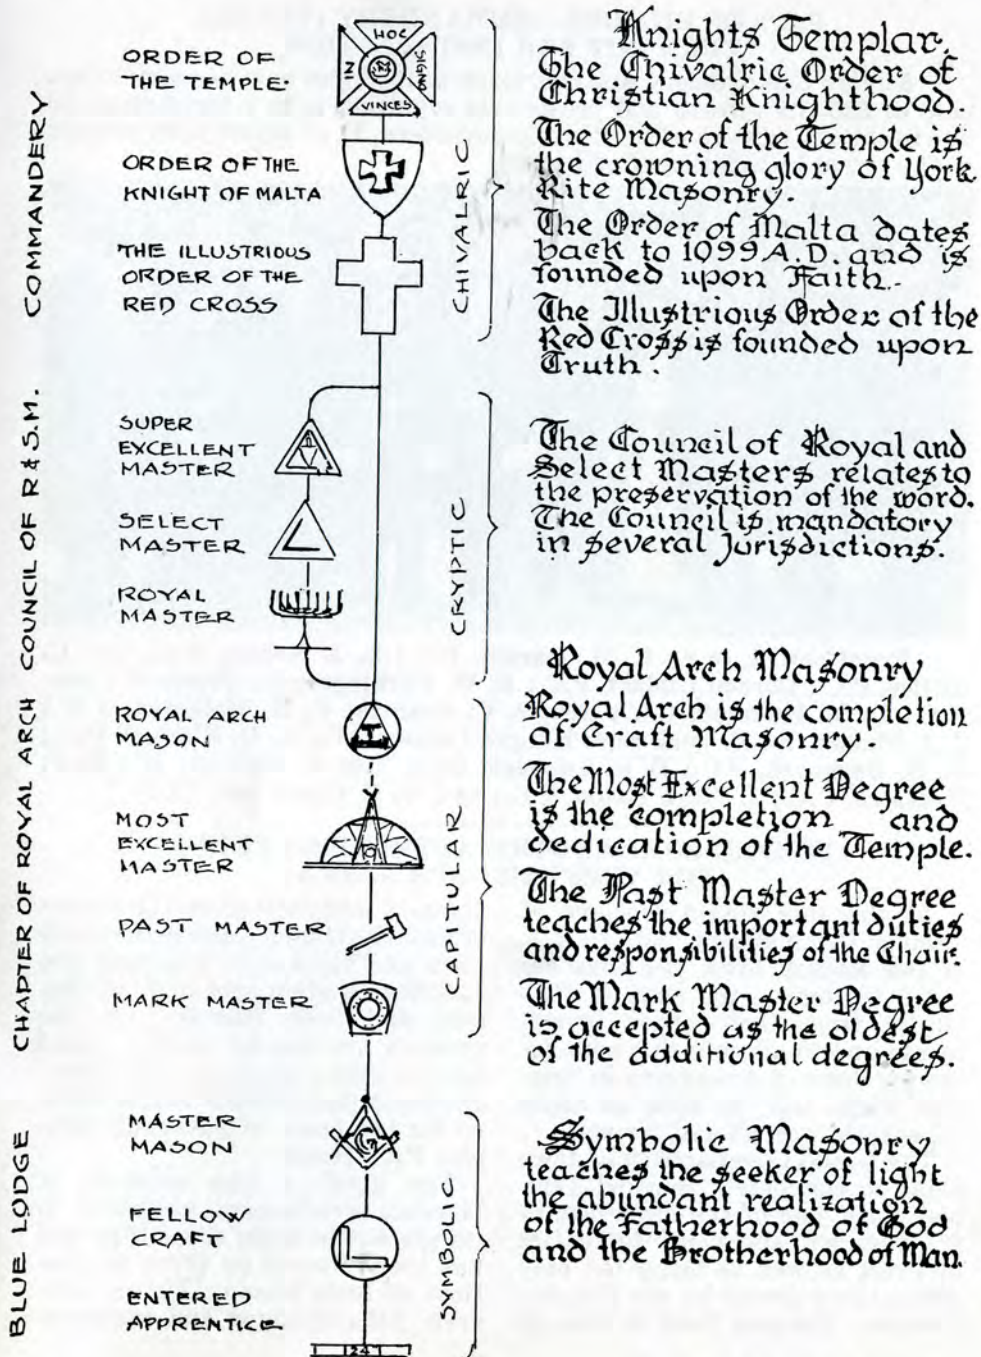 COMMANDERY
ORDER OF
THE TEMPLE
HOC
SIGNO
VINCES
IN
ORDER OF THE
KNIGHT OF MALTA
THE ILLUSTRIOUS
ORDER OF THE
RED CROSS
CHIVALRIC
Knights Templar.
The Chivalric Order of
Christian Knighthood.
The Order of the Temple is
the crowning glory of York
Rite Masonry.
The Order of Malta dates
back to 1099 A.D. and is
founded upon Faith.
The Illustrious Order of the
Red Cross is founded upon
Truth.
COUNCIL OF R & S.M.
SUPER
EXCELLENT
MASTER
SELECT
MASTER
ROYAL
MASTER
CRYPTIC
The Council of Royal and
Select Masters relates to
the preservation of the word.
The Council is mandatory
in several Jurisdictions.
CHAPTER OF ROYAL ARCH
ROYAL ARCH
MASON
MOST
EXCELLENT
MASTER
PAST MASTER
MARK MASTER
CAPITULAR
Royal Arch Masonry
Royal Arch is the completion
of Craft Masonry.
The Most Excellent Degree
is the completion and
dedication of the Temple.
The Past Master Degree
teaches the important duties
and responsibilities of the Chair.
The Mark Master Degree
is accepted as the oldest
of the additional degrees.
BLUE LODGE
MASTER
MASON
G
FELLOW
CRAFT
ENTERED
APPRENTICE
24
SYMBOLIC
Symbolic Masonry
teaches the seeker of light
the abundant realization
of the Fatherhood of God
and the Brotherhood of Man.